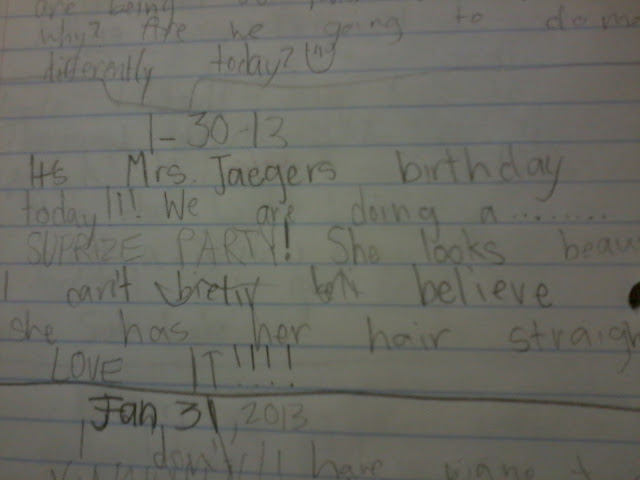 are being
Why? Are we going to do
differently today?
1-30-13
It's Mrs. Jaegers birthday
today!!! We are doing a........
SUPRIZE PARTY! She looks beau
I can't believe
she has her hair straigh
LOVE IT!!!!
Jan, 31, 2013
I don't have piano